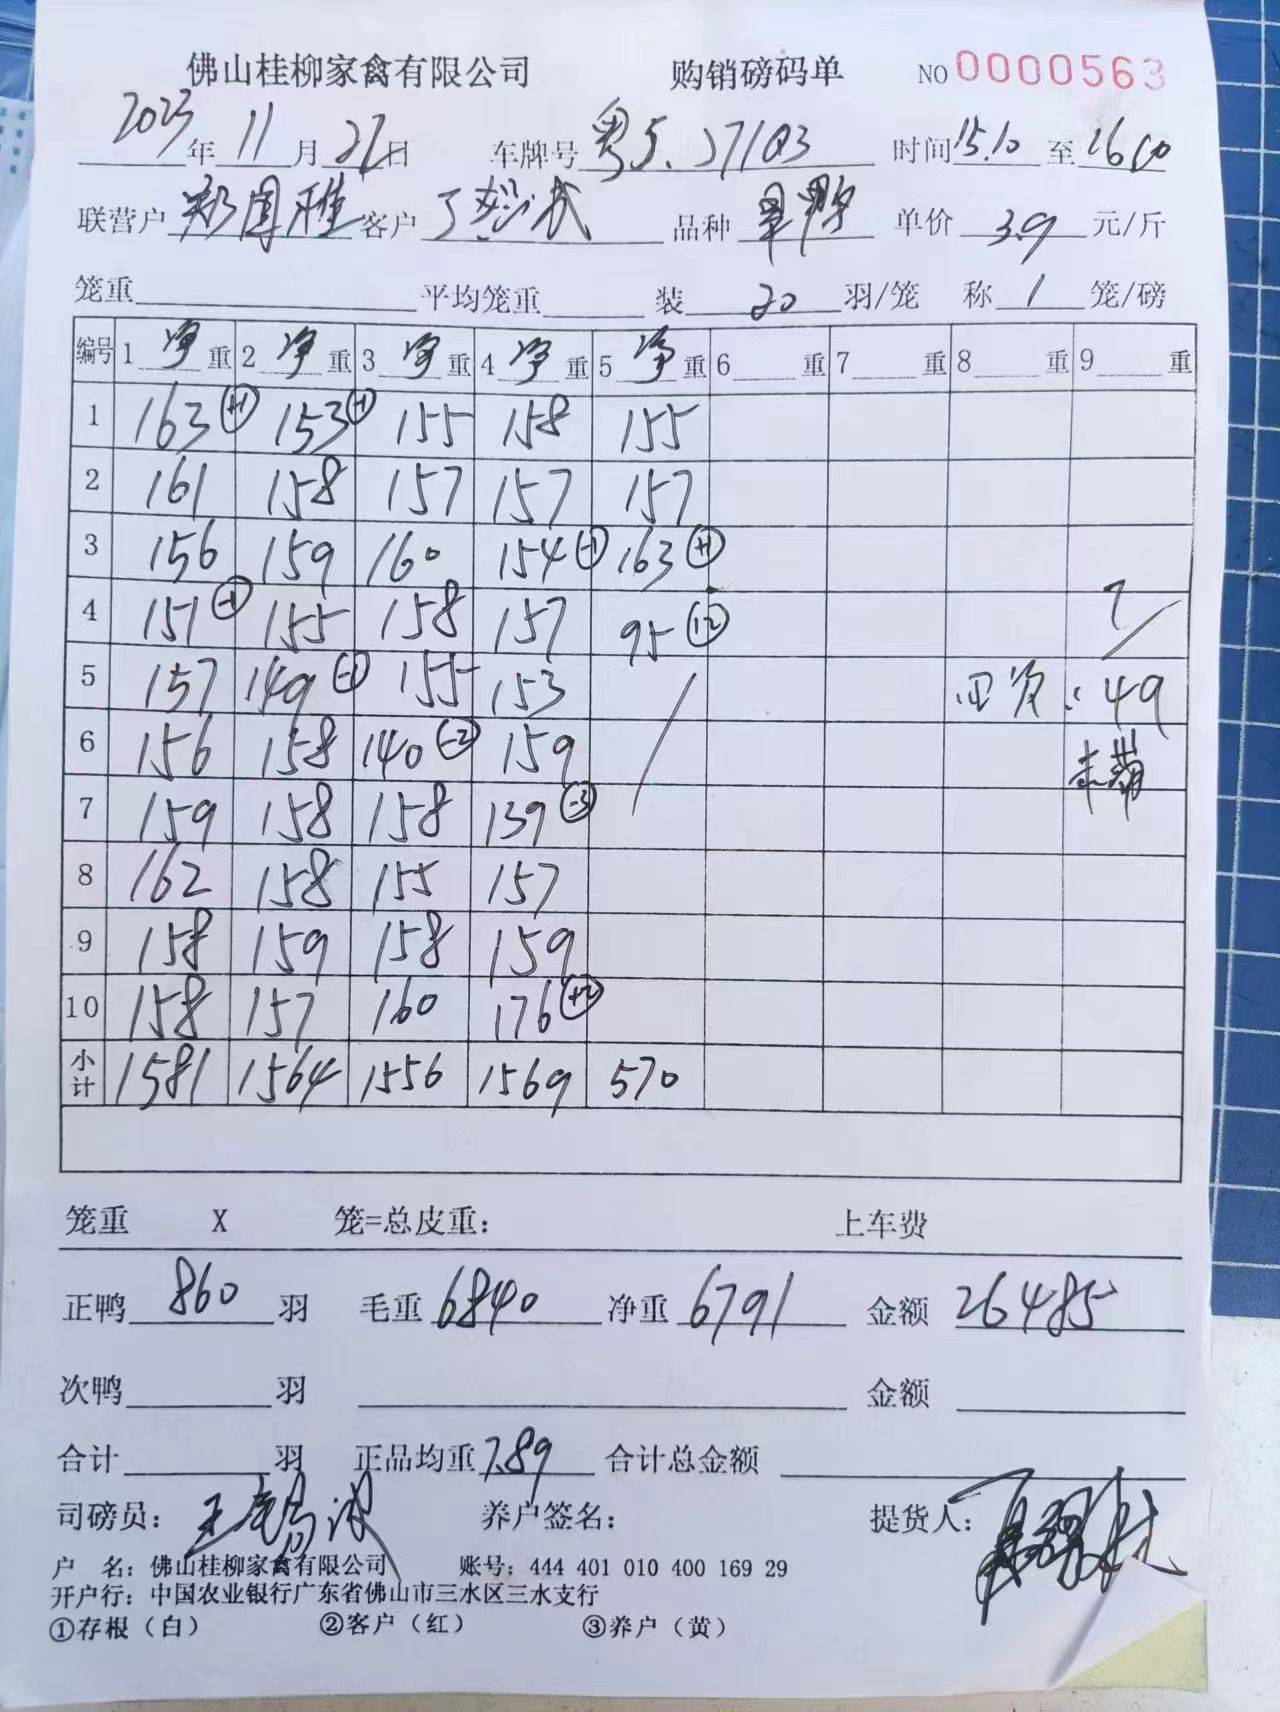 佛山桂柳家禽有限公司 购销磅码单 NO 0000563
2023年 11月 27日 车牌号 粤S.271Q3 时间 15.10 至 16
联营户 郑国雄 客户 丁 品种 单价 3.9 元/斤
笼重 平均笼重 装 20 羽/笼 称 1 笼/磅
编号 1 净重 2 净重 3 净重 4 净重 5 净重 6 重 7 重 8 重 9 重
1 163 (+1) 153 (-1) 155 158 155
2 161 158 157 157 157
3 156 159 160 154 (-1) 163 (+1)
4 151 (-1) 155 158 157 95 (12)
5 157 149 (-1) 155 153 49
6 156 158 140 (-2) 159
7 159 158 158 139 (-3)
8 162 158 155 157
9 158 159 158 159
10 158 157 160 176 (+2)
小计 1581 1564 1556 1569 570
笼重 X 笼=总皮重: 上车费
正鸭 860 羽 毛重 6840 净重 6791 金额 26485
次鸭 羽 金额
合计 羽 正品均重 7.89 合计总金额
司磅员: 养户签名: 提货人:
户 名: 佛山桂柳家禽有限公司 账号: 444 401 010 400 169 29
开户行: 中国农业银行广东省佛山市三水区三水支行
①存根(白) ②客户(红) ③养户(黄)